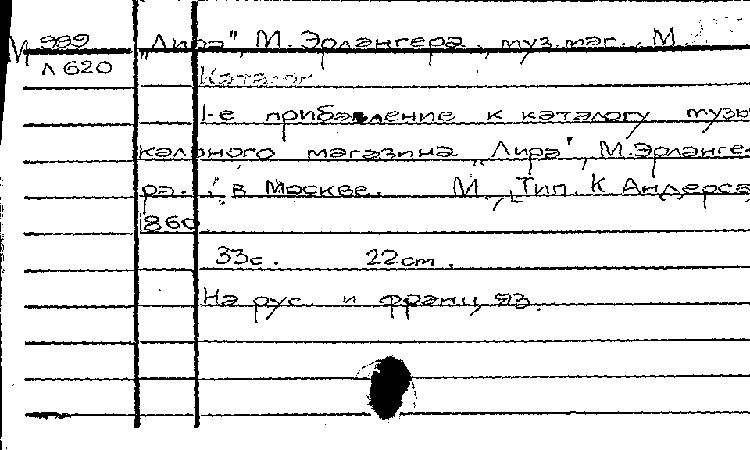 М 989 „Лира", М. Эрлангера, муз. маг. М.
Л 620
Каталог
1-е прибавление к каталогу музы
кального магазина „Лира", М. Эрланге
ра... в Москве. М., Тип. К. Андерса,
860.
33с. 22cm.
На рус. и франц. яз.